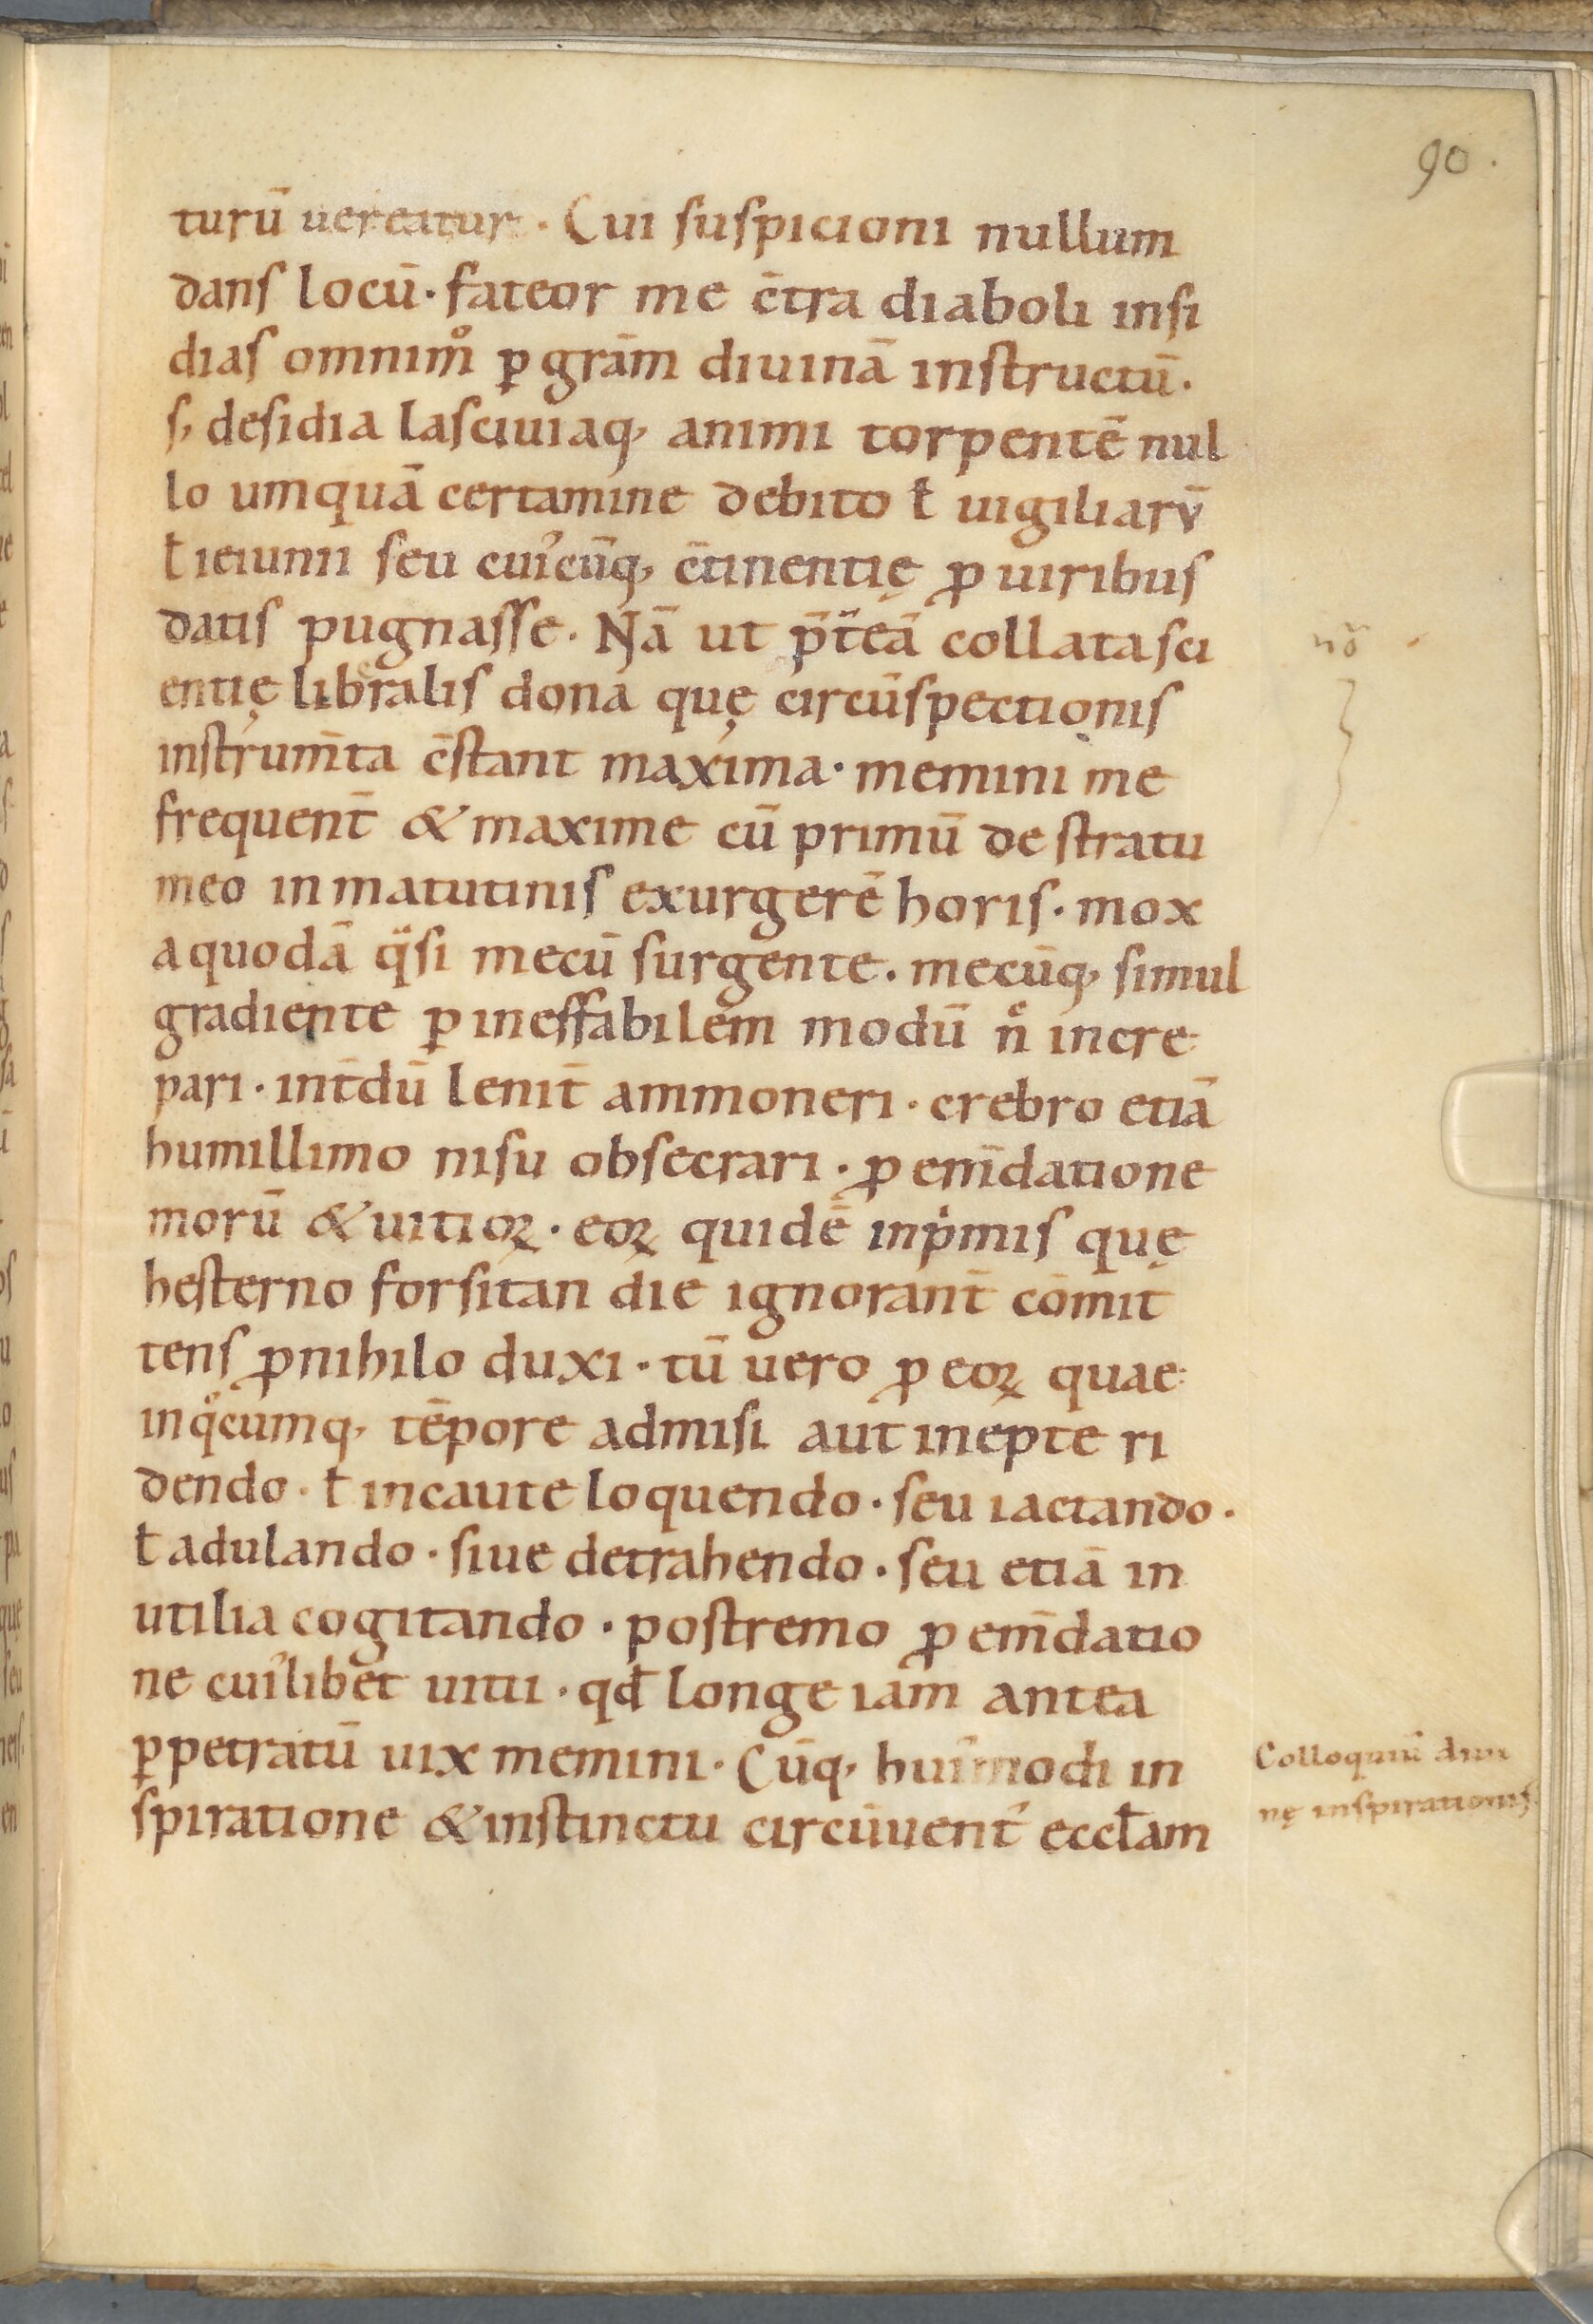 90.
turū uereatur. Cui suspicioni nullum
dans locū. fateor me c̄tra diaboli insi
dias omnimͦ ꝑ grām diuinā instructū.
s, desidia lasciuiaq, animi torpentē nul
lo umquā certamine debito ł uigiliarv̄
ł ieiunii seu cui᾽cūq, c̄tinentię ꝓ uiribus
datis pugnasse. Nā ut p̄t̄eā collata sci
entię liberalis dona quę circūspectionis
instrum̄ta c̄stant maxima. memini me
frequent̄ & maxime cū primū de stratu
meo in matutinis exurgerē horis. mox
a quodā qͣsi mecū surgente. mecūq, simul
gradiente ꝑ ineffabilem modū nͦ incre
pari. int̄dū lenit̄ ammoneri. crebro etiā
humillimo nisu obsecrari. ꝓ em̄datione
morū & uitioꝝ. eoꝝ quidē inpͥmis quę
hesterno forsitan die ignorant̄ cōmit
tens ꝓ nihilo duxi. tū uero ꝓ eoꝝ quae
in qͦcumq, tēpore admisi aut inepte ri
dendo. ł incaute loquendo. seu iactando.
ł adulando. siue detrahendo. seu etiā in
utilia cogitando. postremo ꝓ em̄datio
ne cui᾽libet uitii. qđ longe iam antea
ꝑpetratū uix memini. Cūq, hui᾽modi in
spiratione & instinctu circūuent᾽ eccłam
Colloquiū diui
nę inspirationis